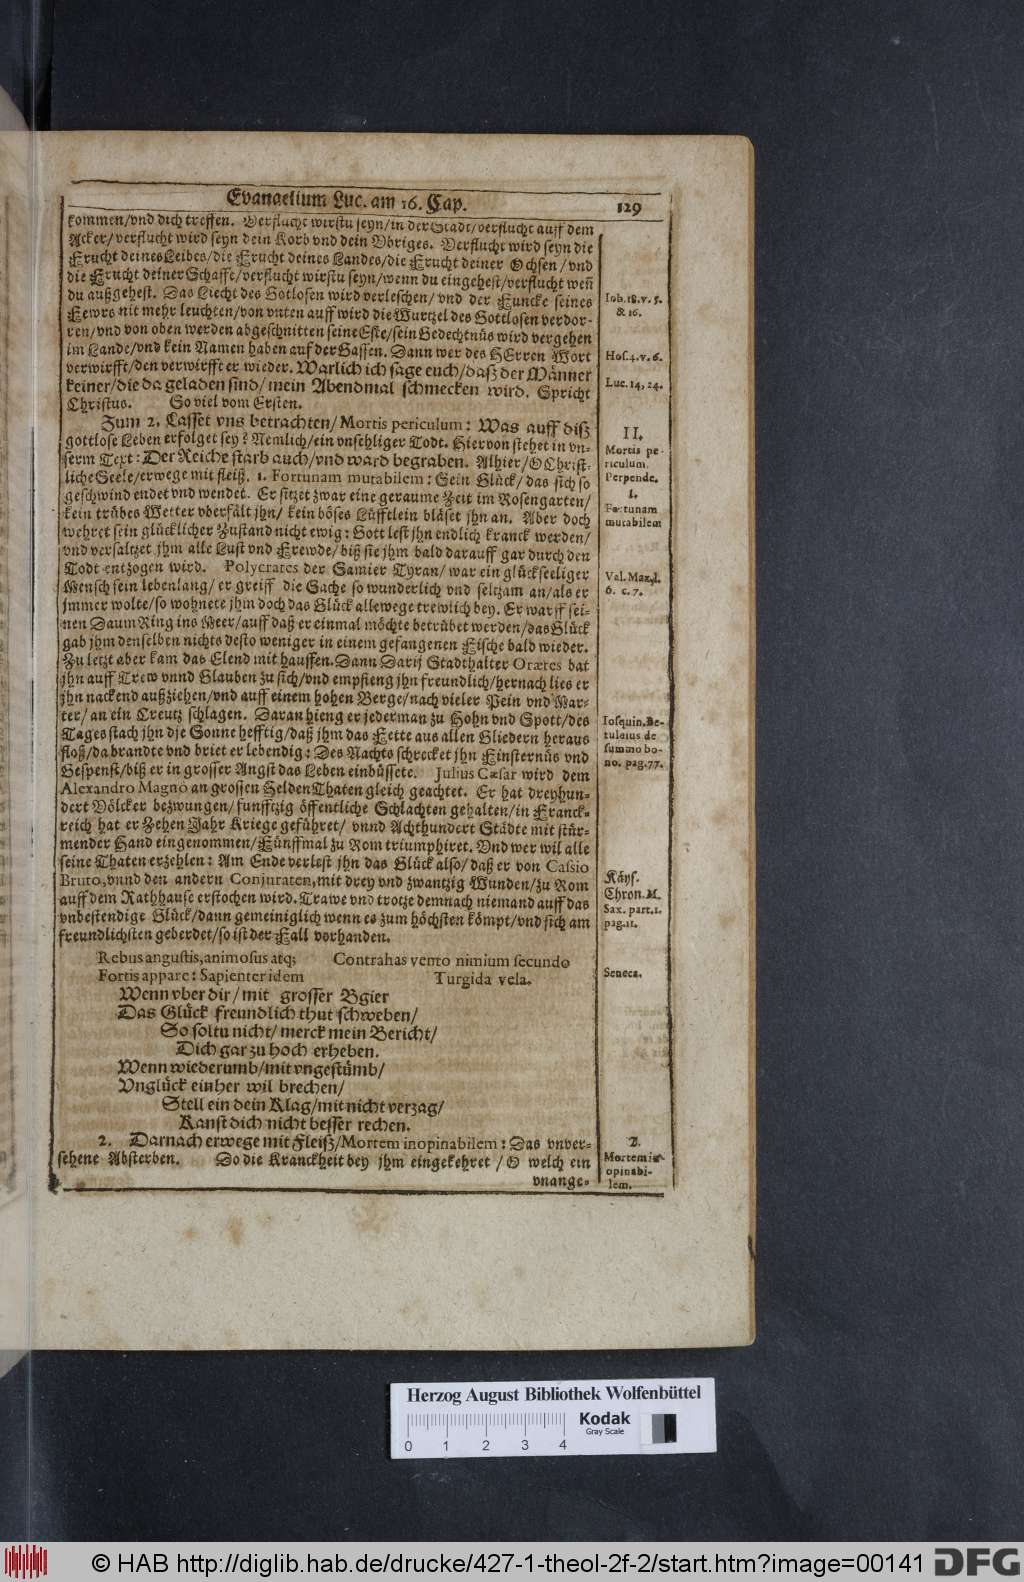 Evangelium Luc. am 16. Cap.
129
kommen/vnd dich treffen. Verflucht wirstu seyn/in der Stadt/verflucht auff dem
Acker/verflucht wird seyn dein Korb vnd dein Vbriges. Verflucht wird seyn die
Frucht deines Leibes/die Frucht deines Landes/die Frucht deiner Ochsen/vnd
die Frucht deiner Schaffe/verflucht wirstu seyn/wenn du eingehest/verflucht weñ
du außgehest. Das Liecht des Gotlosen wird verleschen/vnd der Funcke seines
Fewrs nit mehr leuchten/von vnten auff wird die Wurtzel des Gottlosen verdor-
ren/vnd von oben werden abgeschnitten seine Este/sein Gedechtnüs wird vergehen
im Lande/vnd kein Namen haben auf der Gassen. Dann wer des HErren Wort
verwirfft/den verwirfft er wieder. Warlich ich sage euch/daß der Männer
keiner/die da geladen sind/mein Abendmal schmecken wird. Spricht
Christus. So viel vom Ersten.
Zum 2. Lasset vns betrachten/Mortis periculum: Was auff diß
gottlose Leben erfolget sey? Nemlich/ein vnsehliger Todt. Hiervon stehet in vn-
serm Text: Der Reiche starb auch/vnd ward begraben. Alhier/O Christ-
liche Seele/erwege mit fleiß. 1. Fortunam mutabilem: Sein Glück/das sich so
geschwind endet vnd wendet. Er sitzet zwar eine geraume Zeit im Rosengarten/
kein trübes Wetter vberfält jhn/kein böses Lüfftlein bläset jhn an. Aber doch
wehret sein glücklicher Zustand nicht ewig: Gott lest jhn endlich kranck werden/
vnd versaltzet jhm alle Lust vnd Frewde/biß sie jhm bald darauff gar durch den
Todt entzogen wird. Polycrates der Samier Tyran/war ein glückseeliger
Mensch sein lebenlang/er greiff die Sache so wunderlich vnd seltzam an/als er
jmmer wolte/so wohnete jhm doch das Glück allewege trewlich bey. Er warff sei-
nen Daum Ring ins Meer/auff daß er einmal möchte betrübet werden/das Glück
gab jhm denselben nichts desto weniger in einem gefangenen Fische bald wieder.
Zu letzt aber kam das Elend mit hauffen. Dann Darij Stadthalter Orætes bat
jhn auff Trew vnnd Glauben zu sich/vnd empfieng jhn freundlich/hernach lies er
jhn nackend außziehen/vnd auff einem hohen Berge/nach vieler Pein vnd Mar-
ter/an ein Creutz schlagen. Daran hieng er jederman zu Hohn vnd Spott/des
Tages stach jhn die Sonne hefftig/daß jhm das Feite aus allen Gliedern heraus
floß/da brandte vnd briet er lebendig: Des Nachts schrecket jhn Finsternüs vnd
Gespenst/biß er in grosser Angst das Leben einbüssete. Julius Cæsar wird dem
Alexandro Magno an grossen Helden Thaten gleich geachtet. Er hat dreyhun-
dert Völcker bezwungen/funfftzig öffentliche Schlachten gehalten/in Franck-
reich hat er Zehen Jahr Kriege geführet/vnnd Achthundert Städte mit stür-
mender Hand eingenommen/Fünffmal zu Rom triumphiret. Vnd wer wil alle
seine Thaten erzehlen: Am Ende verlest jhn das Glück also/daß er von Cassio
Bruto, vnnd den andern Conjuraten, mit drey vnd zwantzig Wunden/zu Rom
auff dem Rathhause erstochen wird. Trawe vnd trotze demnach niemand auff das
vnbestendige Glück/dann gemeiniglich wenn es zum höchsten kömpt/vnd sich am
freundlichsten geberdet/so ist der Fall vorhanden.
Rebus angustis, animosus atq; Contrahas vento nimium secundo
Fortis appare: Sapienter idem Turgida vela.
Wenn vber dir/mit grosser Bgier
Das Glück freundlich thut schweben/
So soltu nicht/merck mein Bericht/
Dich gar zu hoch erheben.
Wenn wiederumb/mit vngestümb/
Vnglück einher wil brechen/
Stell ein dein Klag/mit nicht verzag/
Kanst dich nicht besser rechen.
2. Darnach erwege mit Fleiß/Mortem inopinabilem: Das vnver-
sehene Absterben. Do die Kranckheit bey jhm eingekehret/O welch ein
vnange-
Iob. 18. v. 5.
& 16.
Hos. 4. v. 6.
Luc. 14, 24.
II.
Mortis pe-
riculum.
Perpende.
1.
Fortunam
mutabilem
Val. Max. l.
6. c. 7.
Iosquin. Be-
tuleius de
summo bo-
no. pag. 77.
Käys.
Chron. M.
Sax. part. 1.
pag. 11.
Seneca.
2.
Mortem in-
opinabi-
lem.
Herzog August Bibliothek Wolfenbüttel
Kodak
Gray Scale
0 1 2 3 4
© HAB http://diglib.hab.de/drucke/427-1-theol-2f-2/start.htm?image=00141
DFG